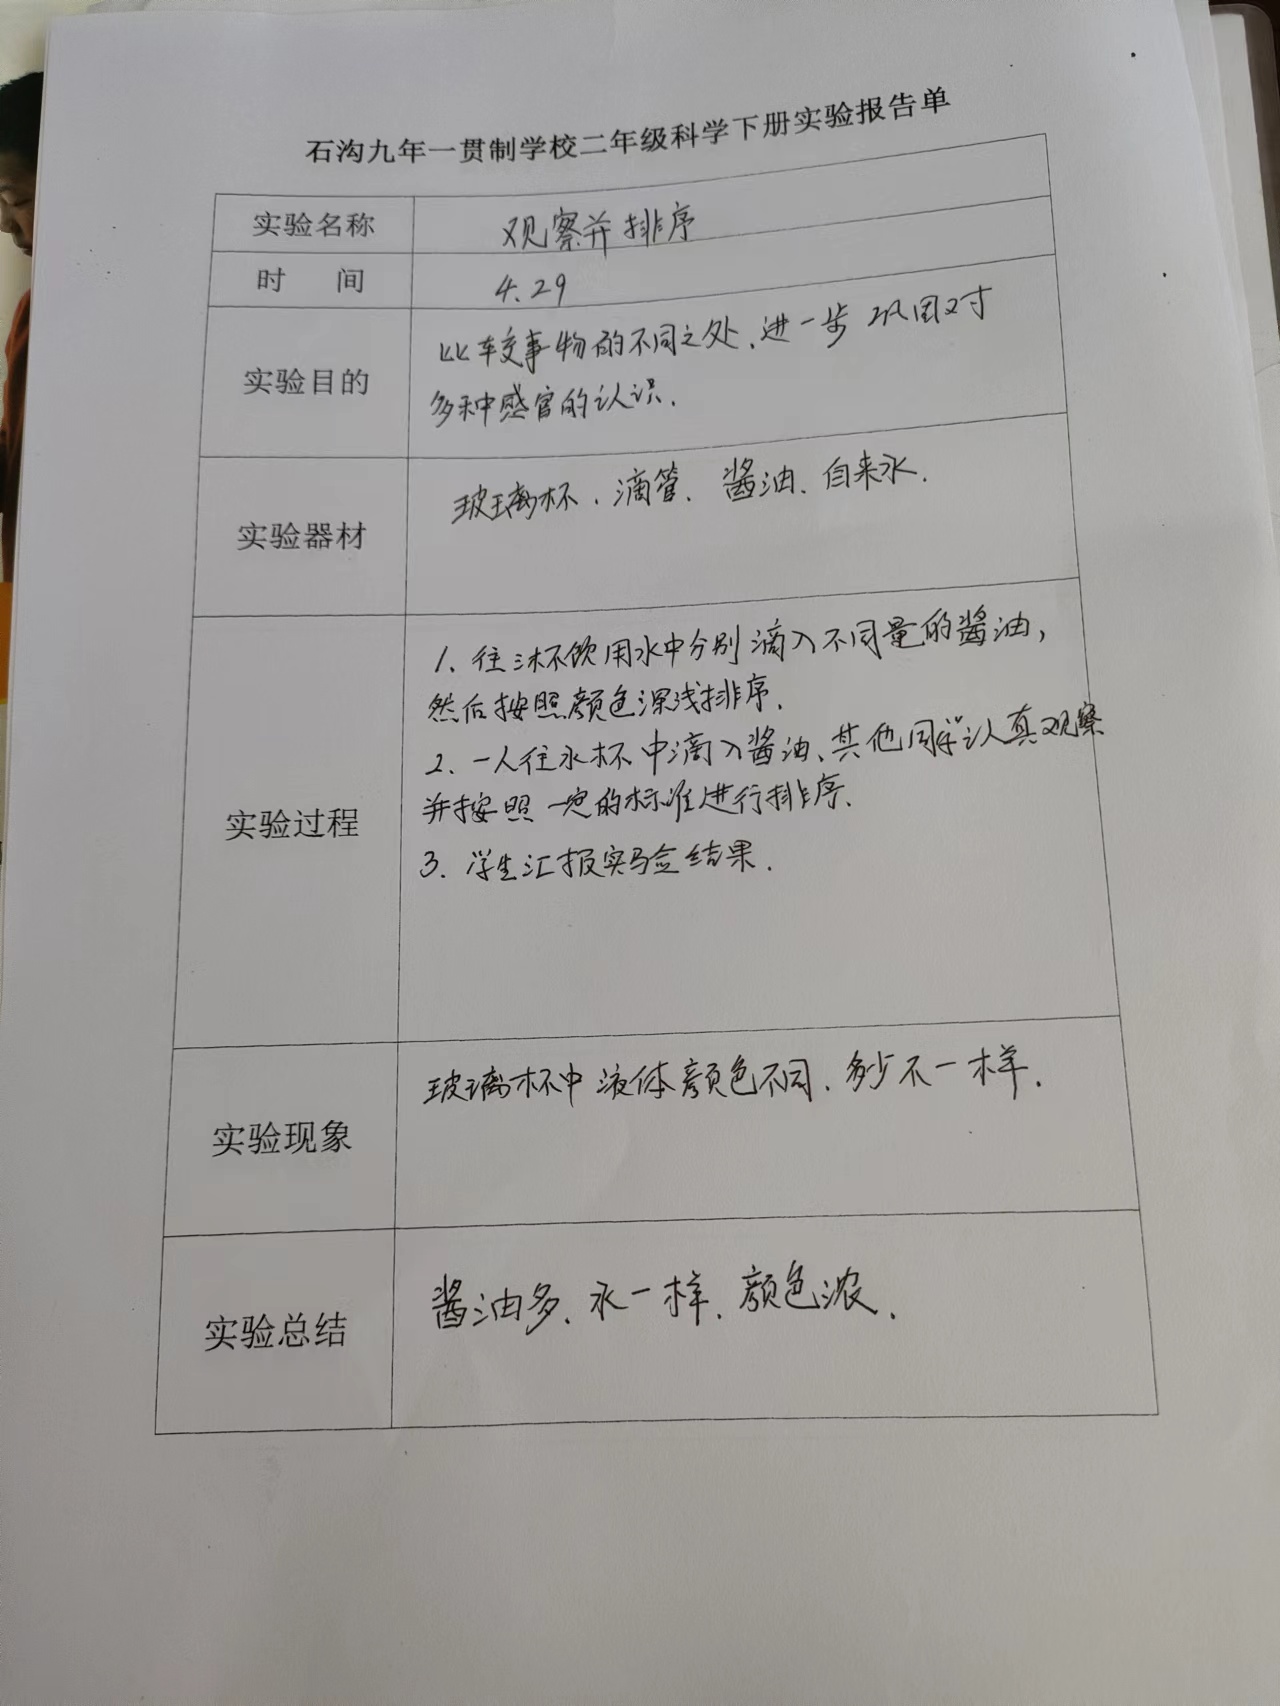 石沟九年一贯制学校二年级科学下册实验报告单
实验名称 观察并排序
时 间 4.29
实验目的 比较事物的不同之处,进一步巩固对
多种感官的认识.
实验器材 玻璃杯、滴管、酱油、自来水.
实验过程 1、往三杯饮用水中分别滴入不同量的酱油,
然后按照颜色深浅排序.
2、一人往水杯中滴入酱油、其他同学认真观察
并按照一定的标准进行排序.
3. 学生汇报实验结果.
实验现象 玻璃杯中液体颜色不同、多少不一样.
实验总结 酱油多、水一样、颜色浓.